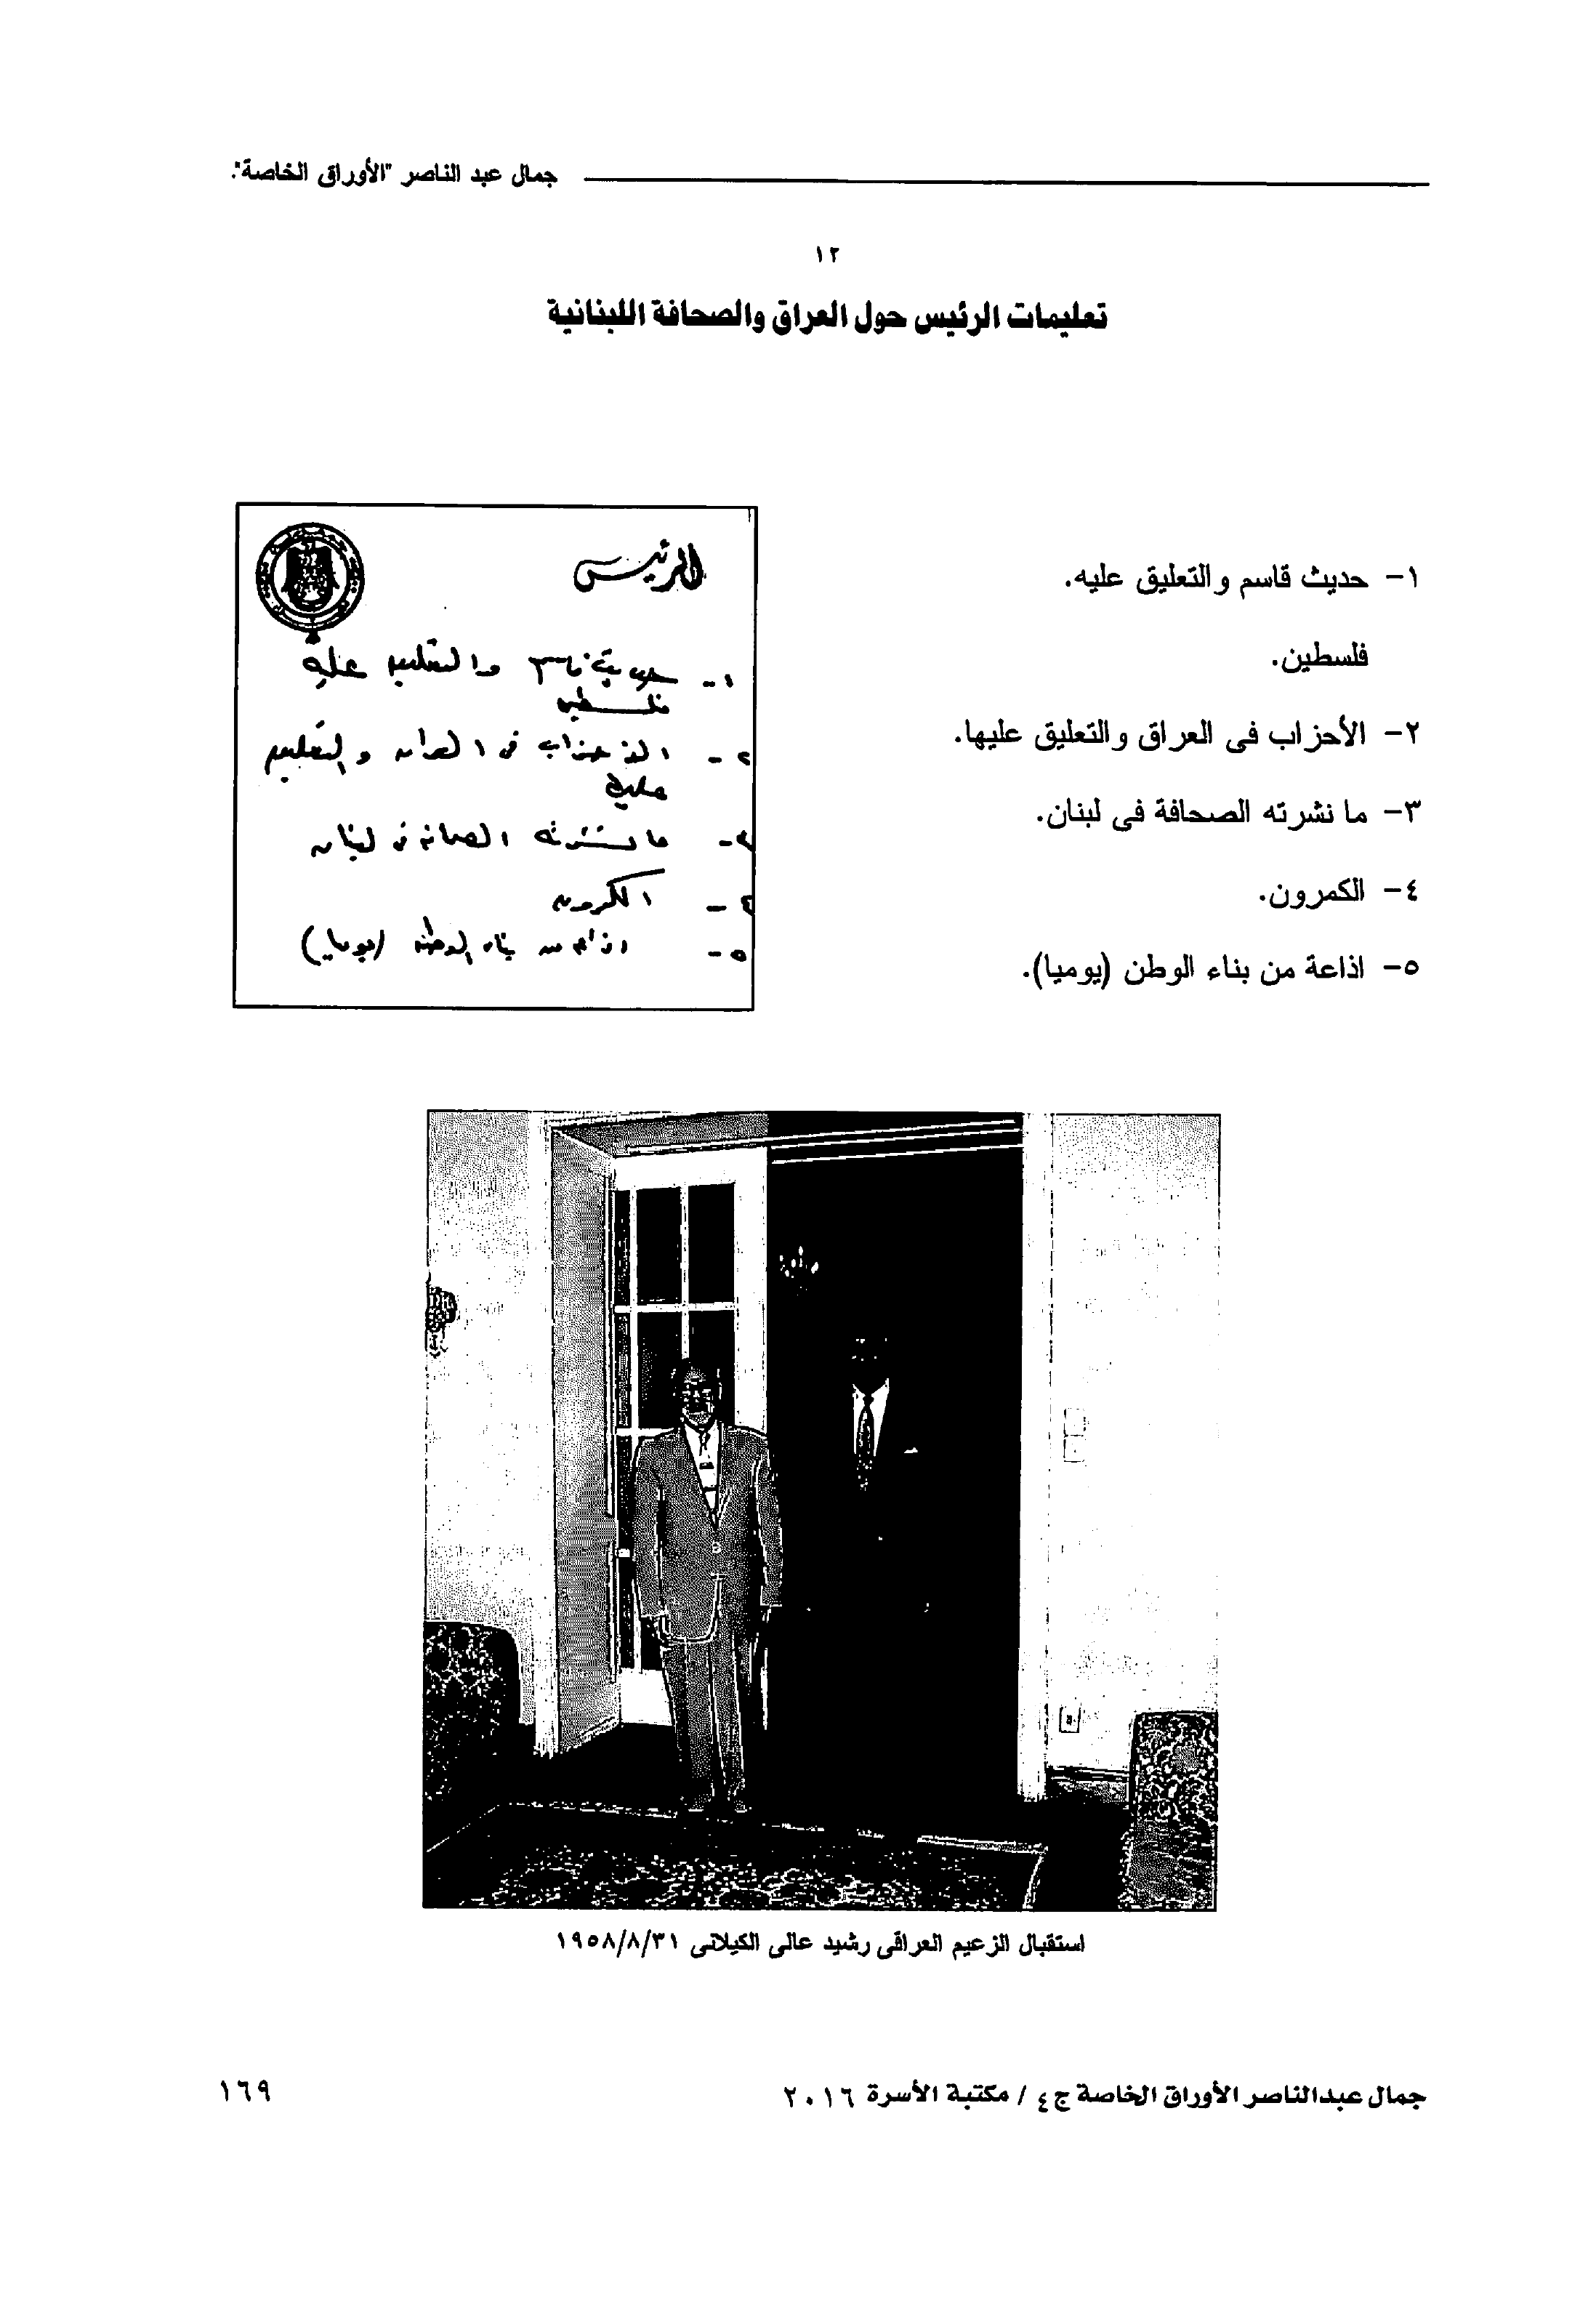 جمال عبد الناصر "الأوراق الخاصة".
١٢
تعليمات الرئيس حول العراق والصحافة اللبنانية
١- حديث قاسم والتعليق عليه.
فلسطين.
٢- الأحزاب فى العراق والتعليق عليها.
٣- ما نشرته الصحافة فى لبنان.
٤- الكمرون.
٥- اذاعة من بناء الوطن (يوميا).
الرئيس
١- حديث قاسم والتعليق عليه
فلسطين
٢- الأحزاب فى العراق والتعليق
عليها
٣- ما نشرته الصحافة فى لبنان
٤- الكمرون
٥- اذاعة من بناء الوطن (يوميا)
استقبال الزعيم العراقى رشيد عالى الكيلانى ١٩٥٨/٨/٣١
جمال عبدالناصر الأوراق الخاصة ج٤ / مكتبة الأسرة ٢٠١٦
١٦٩